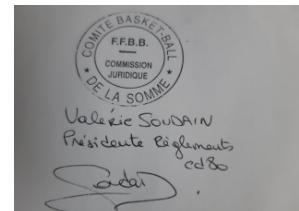 COMITÉ BASKET-BALL
F.F.B.B.
COMMISSION
JURIDIQUE
* DE LA SOMME *
Valérie SOUDAIN
Présidente Règlements
cd80